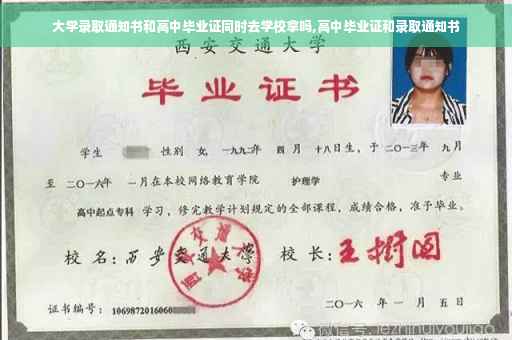 大学录取通知书和高中毕业证同时去学校拿吗,高中毕业证和录取通知书
西安交通大学
毕业证书
学生 性别 女, 一九九二年 四月 十八日生, 于 二〇一三年 九月
至 二〇一六年 一月在本校网络教育学院 护理学 专业
高中起点专科 学习, 修完教学计划规定的全部课程, 成绩合格, 准予毕业。
校名: 西安交通大学 校长: 王树国
西安交通大学
证书编号: 1069872016060
二〇一六年 一月 五日
微信号: jezhinuiyoujiao